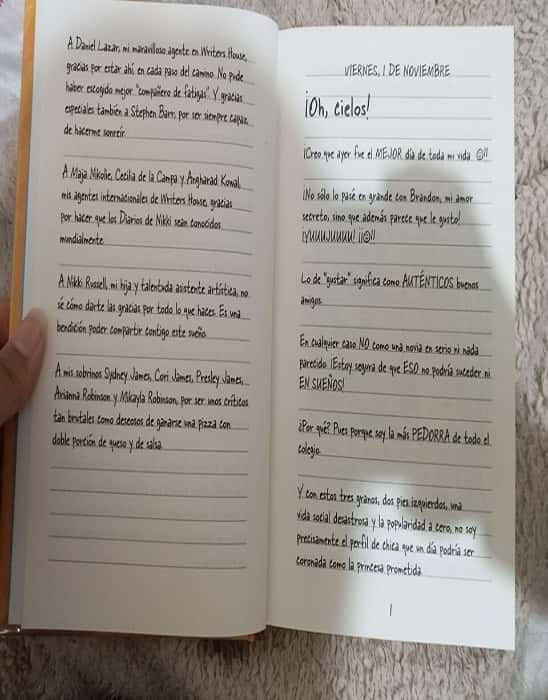 A Daniel Lazar, mi maravilloso agente en Writers House,
gracias por estar ahí, en cada paso del camino. No pude
haber escogido mejor "compañero de fatigas". Y gracias
especiales también a Stephen Barr, por ser siempre capaz
de hacerme sonreír.
A Maja Nikolic, Cecilia de la Campa y Angharad Kowal,
mis agentes internacionales de Writers House, gracias
por hacer que los Diarios de Nikki sean conocidos
mundialmente.
A Nikki Russell, mi hija y talentuda asistente artística, no
sé cómo darte las gracias por todo lo que haces. Es una
bendición poder compartir contigo este sueño.
A mis sobrinos Sydney James, Cori James, Presley James,
Arianna Robinson y Mikayla Robinson, por ser unos críticos
tan brutales como deseosos de ganarse una pizza con
doble porción de queso y de salsa.
VIERNES, 1 DE NOVIEMBRE
¡Oh, cielos!
¡Creo que ayer fue el MEJOR día de toda mi vida ☺!!
¡No sólo lo pasé en grande con Brandon, mi amor
secreto, sino que además parece que le gusto!
¡YUUUJUUUU! ¡¡☺!!
Lo de "gustar" significa como AUTÉNTICOS buenos
amigos.
En cualquier caso NO como una novia en serio ni nada
parecido. ¡Estoy segura de que ESO no podría suceder ni
EN SUEÑOS!
¿Por qué? Pues porque soy la más PEDORRA de todo el
colegio.
Y con estos tres granos, dos pies izquierdos, una
vida social desastrosa y la popularidad a cero, no soy
precisamente el perfil de chica que un día podría ser
coronada como la princesa prometida.
1